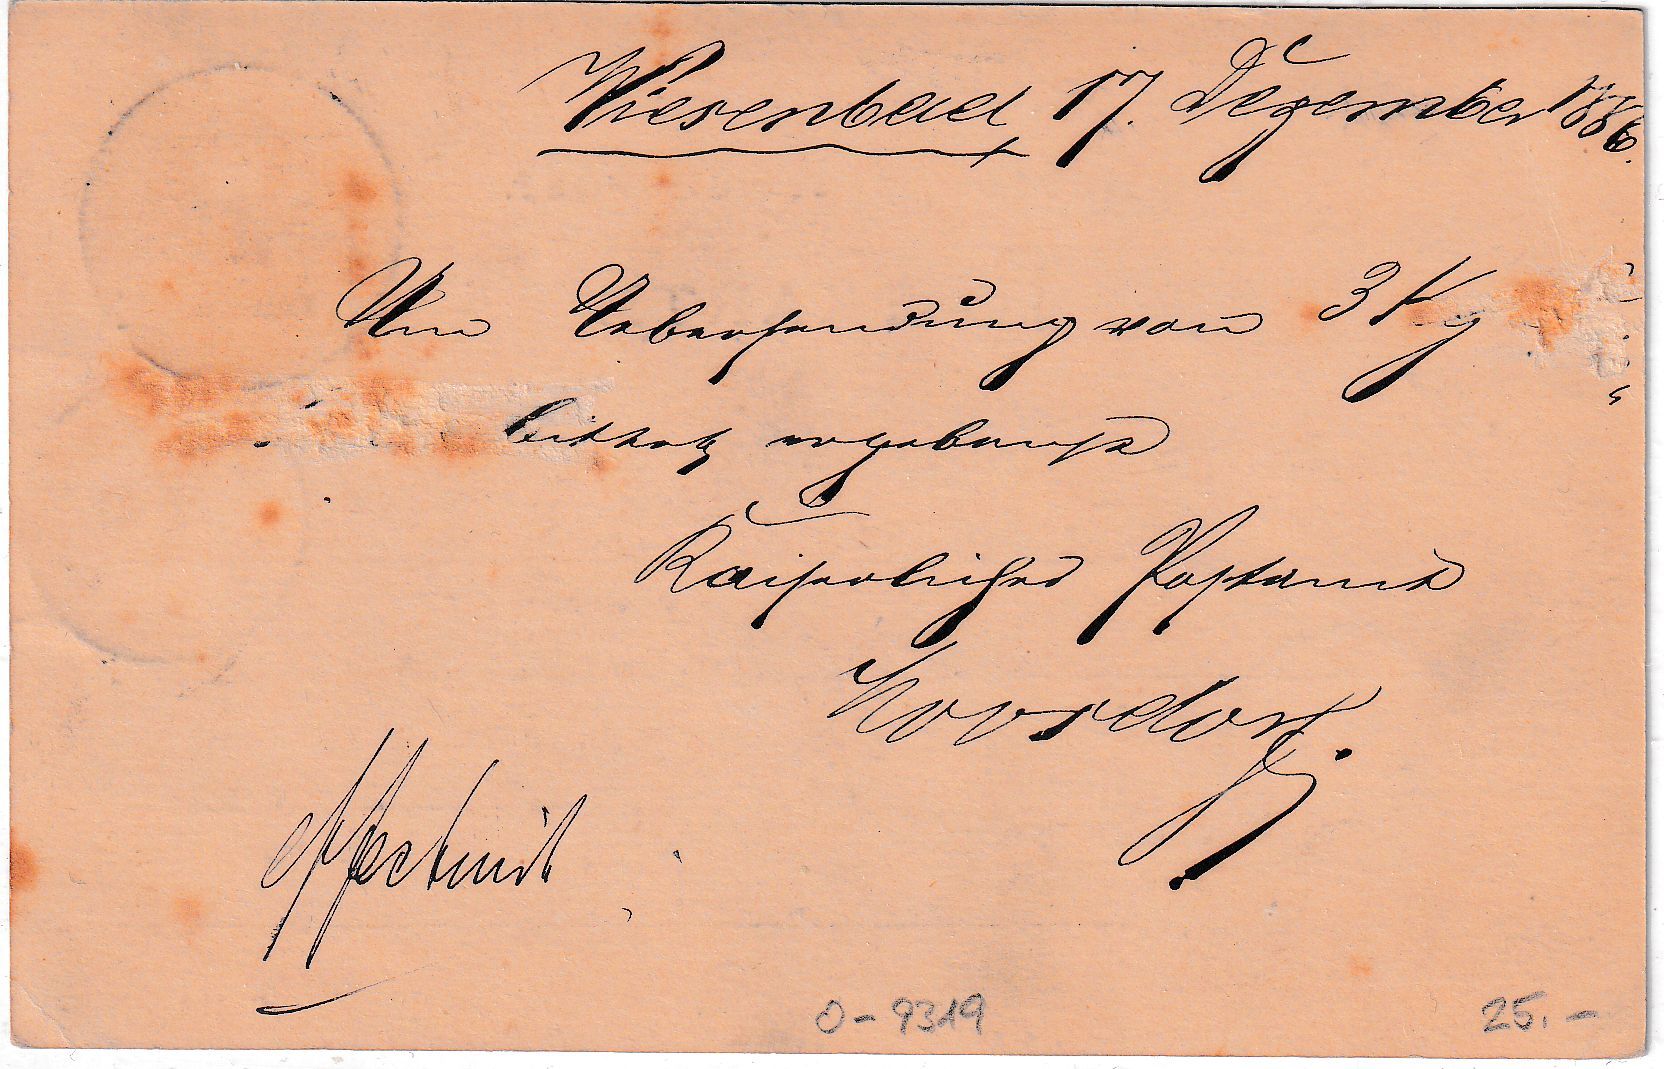 Wiesenbad, 17. Dezember 1886.
Um Uebersendung von 3 Kg
bittet ergebenst
Kaiserliches Postamt
O - 9319 25.-